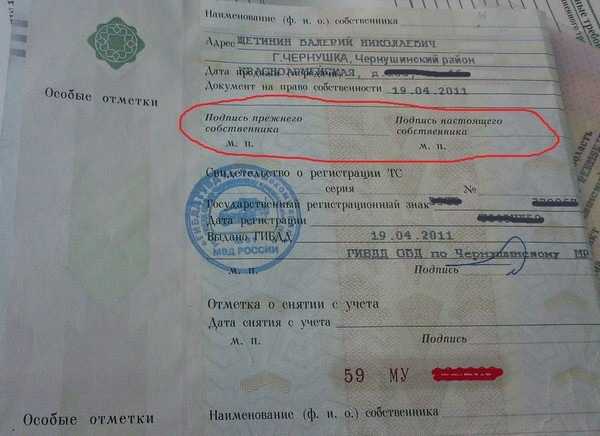 Наименование (ф. и. о.) собственника
ЩЕТИНИН ВАЛЕРИЙ НИКОЛАЕВИЧ
Адрес
Г.ЧЕРНУШКА, Чернушинский район
КРАСНОАРМЕЙСКАЯ
Дата продажи (передачи)
Документ на право собственности 19.04.2011
Особые отметки
Подпись прежнего собственника
Подпись настоящего собственника
м. п.
м. п.
Свидетельство о регистрации ТС
серия №
Государственный регистрационный знак
Дата регистрации
Выдано ГИБДД 19.04.2011
ГИБДД ОВД по Чернушинскому МР
МВД РОССИИ
м. п. Подпись
Отметка о снятии с учета
Дата снятия с учета
м. п. Подпись
59 МУ
Особые отметки
Наименование (ф. и. о.) собственника